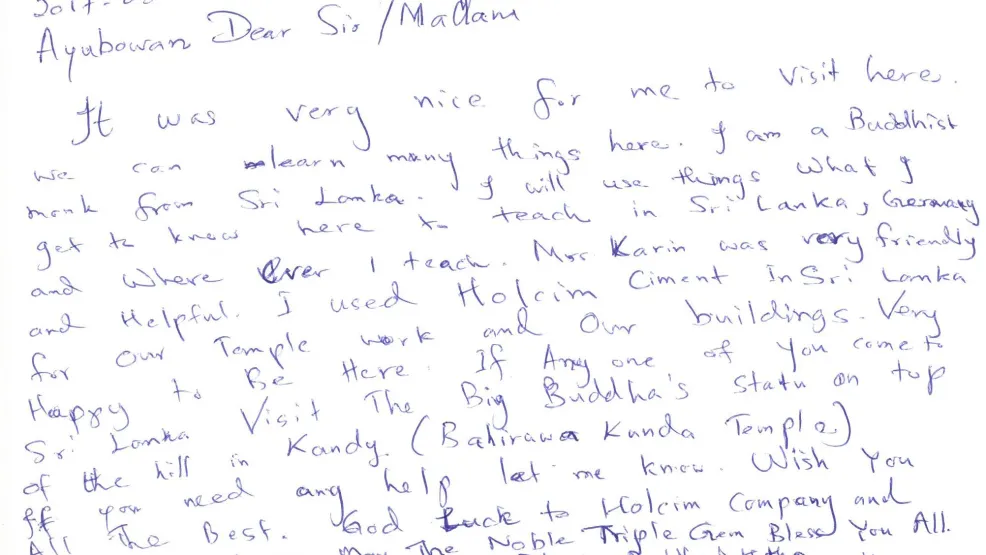 2017-0
Ayubowan Dear Sir/Madam
It was very nice for me to visit here.
we can learn many things here. I am a Buddhist
monk from Sri Lanka. I will use things what I
get to know here to teach in Sri Lanka, Germany
and where ever I teach. Mrs Karin was very friendly
and Helpful. I used Holcim Ciment In Sri Lanka
for Our Temple work and Our buildings. Very
Happy to Be Here. If Any one of You come to
Sri Lanka Visit The Big Buddha's Statu on top
of the hill in Kandy. (Bahirawa Kanda Temple)
If you need any help let me know. Wish You
All The Best. God Luck to Holcim Company and
May The Noble Triple Gem Bless You All.